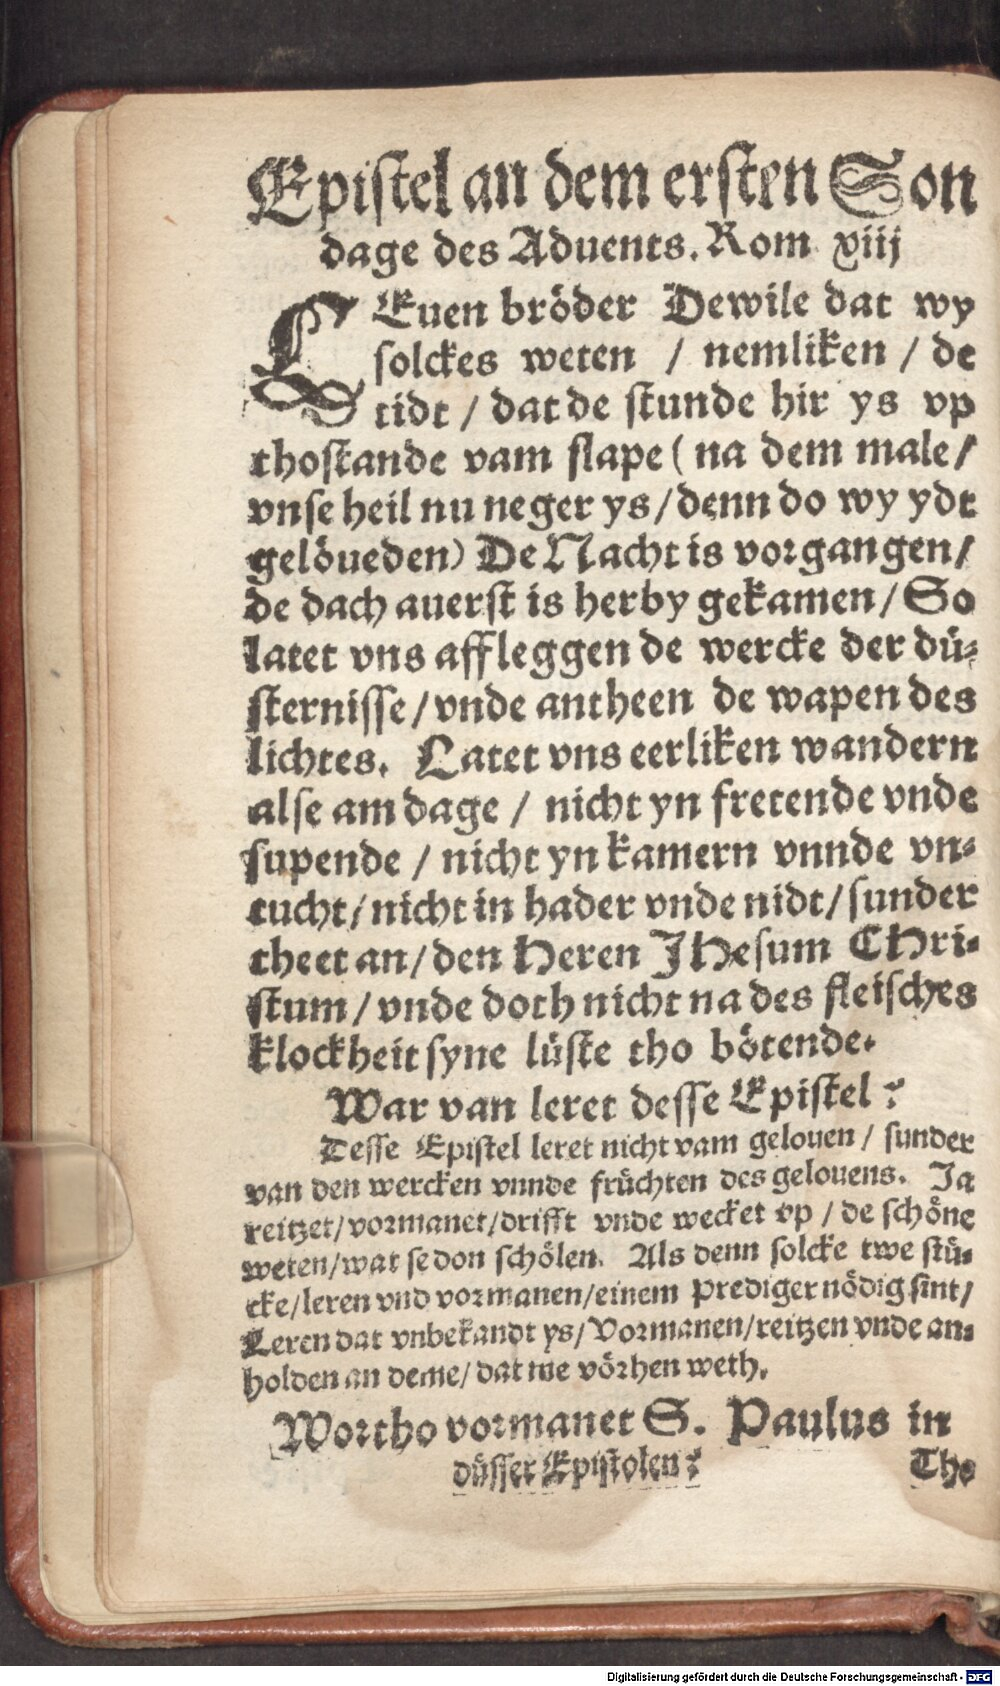 Epistel an dem ersten Son
dage des Aduents. Rom xiij
LEuen bröder Dewile dat wy
solckes weten / nemliken / de
tidt / dat de stunde hir ys vp
thostande vam slape ( na dem male /
vnse heil nu neger ys / denn do wy ydt
gelöueden) De Nacht is vorgangen /
de dach auerst is herby gekamen / So
latet vns affleggen de wercke der dü⸗
sternisse / vnde antheen de wapen des
lichtes. Latet vns eerliken wandern
alse am dage / nicht yn fretende vnde
supende / nicht yn kamern vnnde vn⸗
tucht / nicht in hader vnde nidt / sunder
theet an / den Heren JHesum CHri⸗
stum / vnde doch nicht na des fleisches
klockheit syne lüste tho bötende.
War van leret desse Epistel?
Desse Epistel leret nicht vam gelouen / sunder
van den wercken vnnde früchten des gelouens. Ja
reitzet / vormanet / drifft vnde wecket vp / de schöne
weten / wat se don schölen. Als denn solcke twe stü⸗
cke / leren vnd vormanen / einem Prediger nödig sint /
Leren dat vnbekandt ys / Vormanen / reitzen vnde an⸗
holden an deme / dat me vörhen weth.
Wortho vormanet S. Paulus in
düsser Epistolen?
The
Digitalisierung gefördert durch die Deutsche Forschungsgemeinschaft - DFG